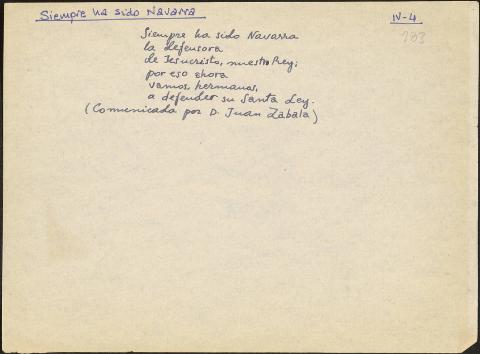 Siempre ha sido Navarra
IV-4
283
Siempre ha sido Navarra
la defensora
de Jesucristo, nuestro Rey;
por eso ahora
vamos, hermanas,
a defender su Santa Ley.
(Comunicada por D. Juan Zabala)